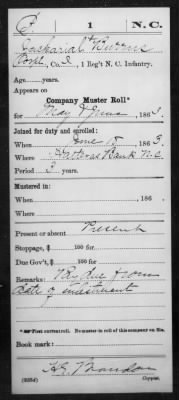 B. | 1 | N.C.
Zachariah Burns
Co. I, 1 Reg't N. C. Infantry.
Age years.
Appears on
Company Muster Roll*
for May & June, 1863
Joined for duty and enrolled:
When June 15, 1863
Where Hatteras Bank N.C.
Period 3 years.
Mustered in:
When , 186
Where
Present or absent Present
Stoppage, $ 100 for
Due Gov't, $ 100 for
Remarks: Pay due from
date of enlistment
*First current roll. No muster-in roll of this company on file.
Book mark:
(858d) Copyist.